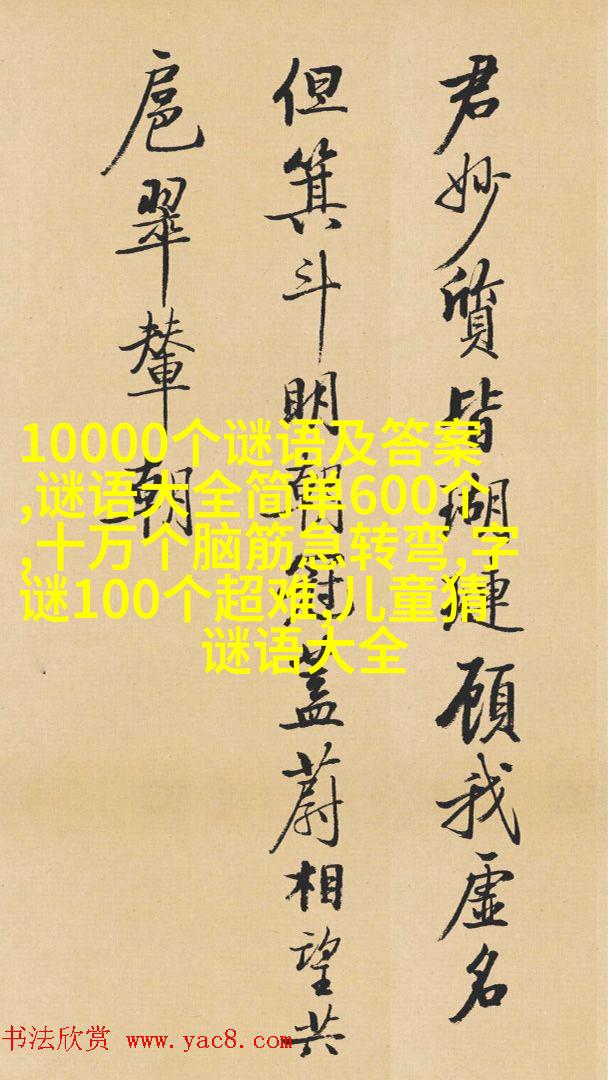 君妙質皆瑚璉顧我虛名
但箕斗明朝冠蓋蔚相望共
扈翠輦朝
10000个谜语及答案
,谜语大全简单600个
,十万个脑筋急转弯,字
谜100个超难,儿童猜
谜语大全
书法欣赏 www.yac8.com